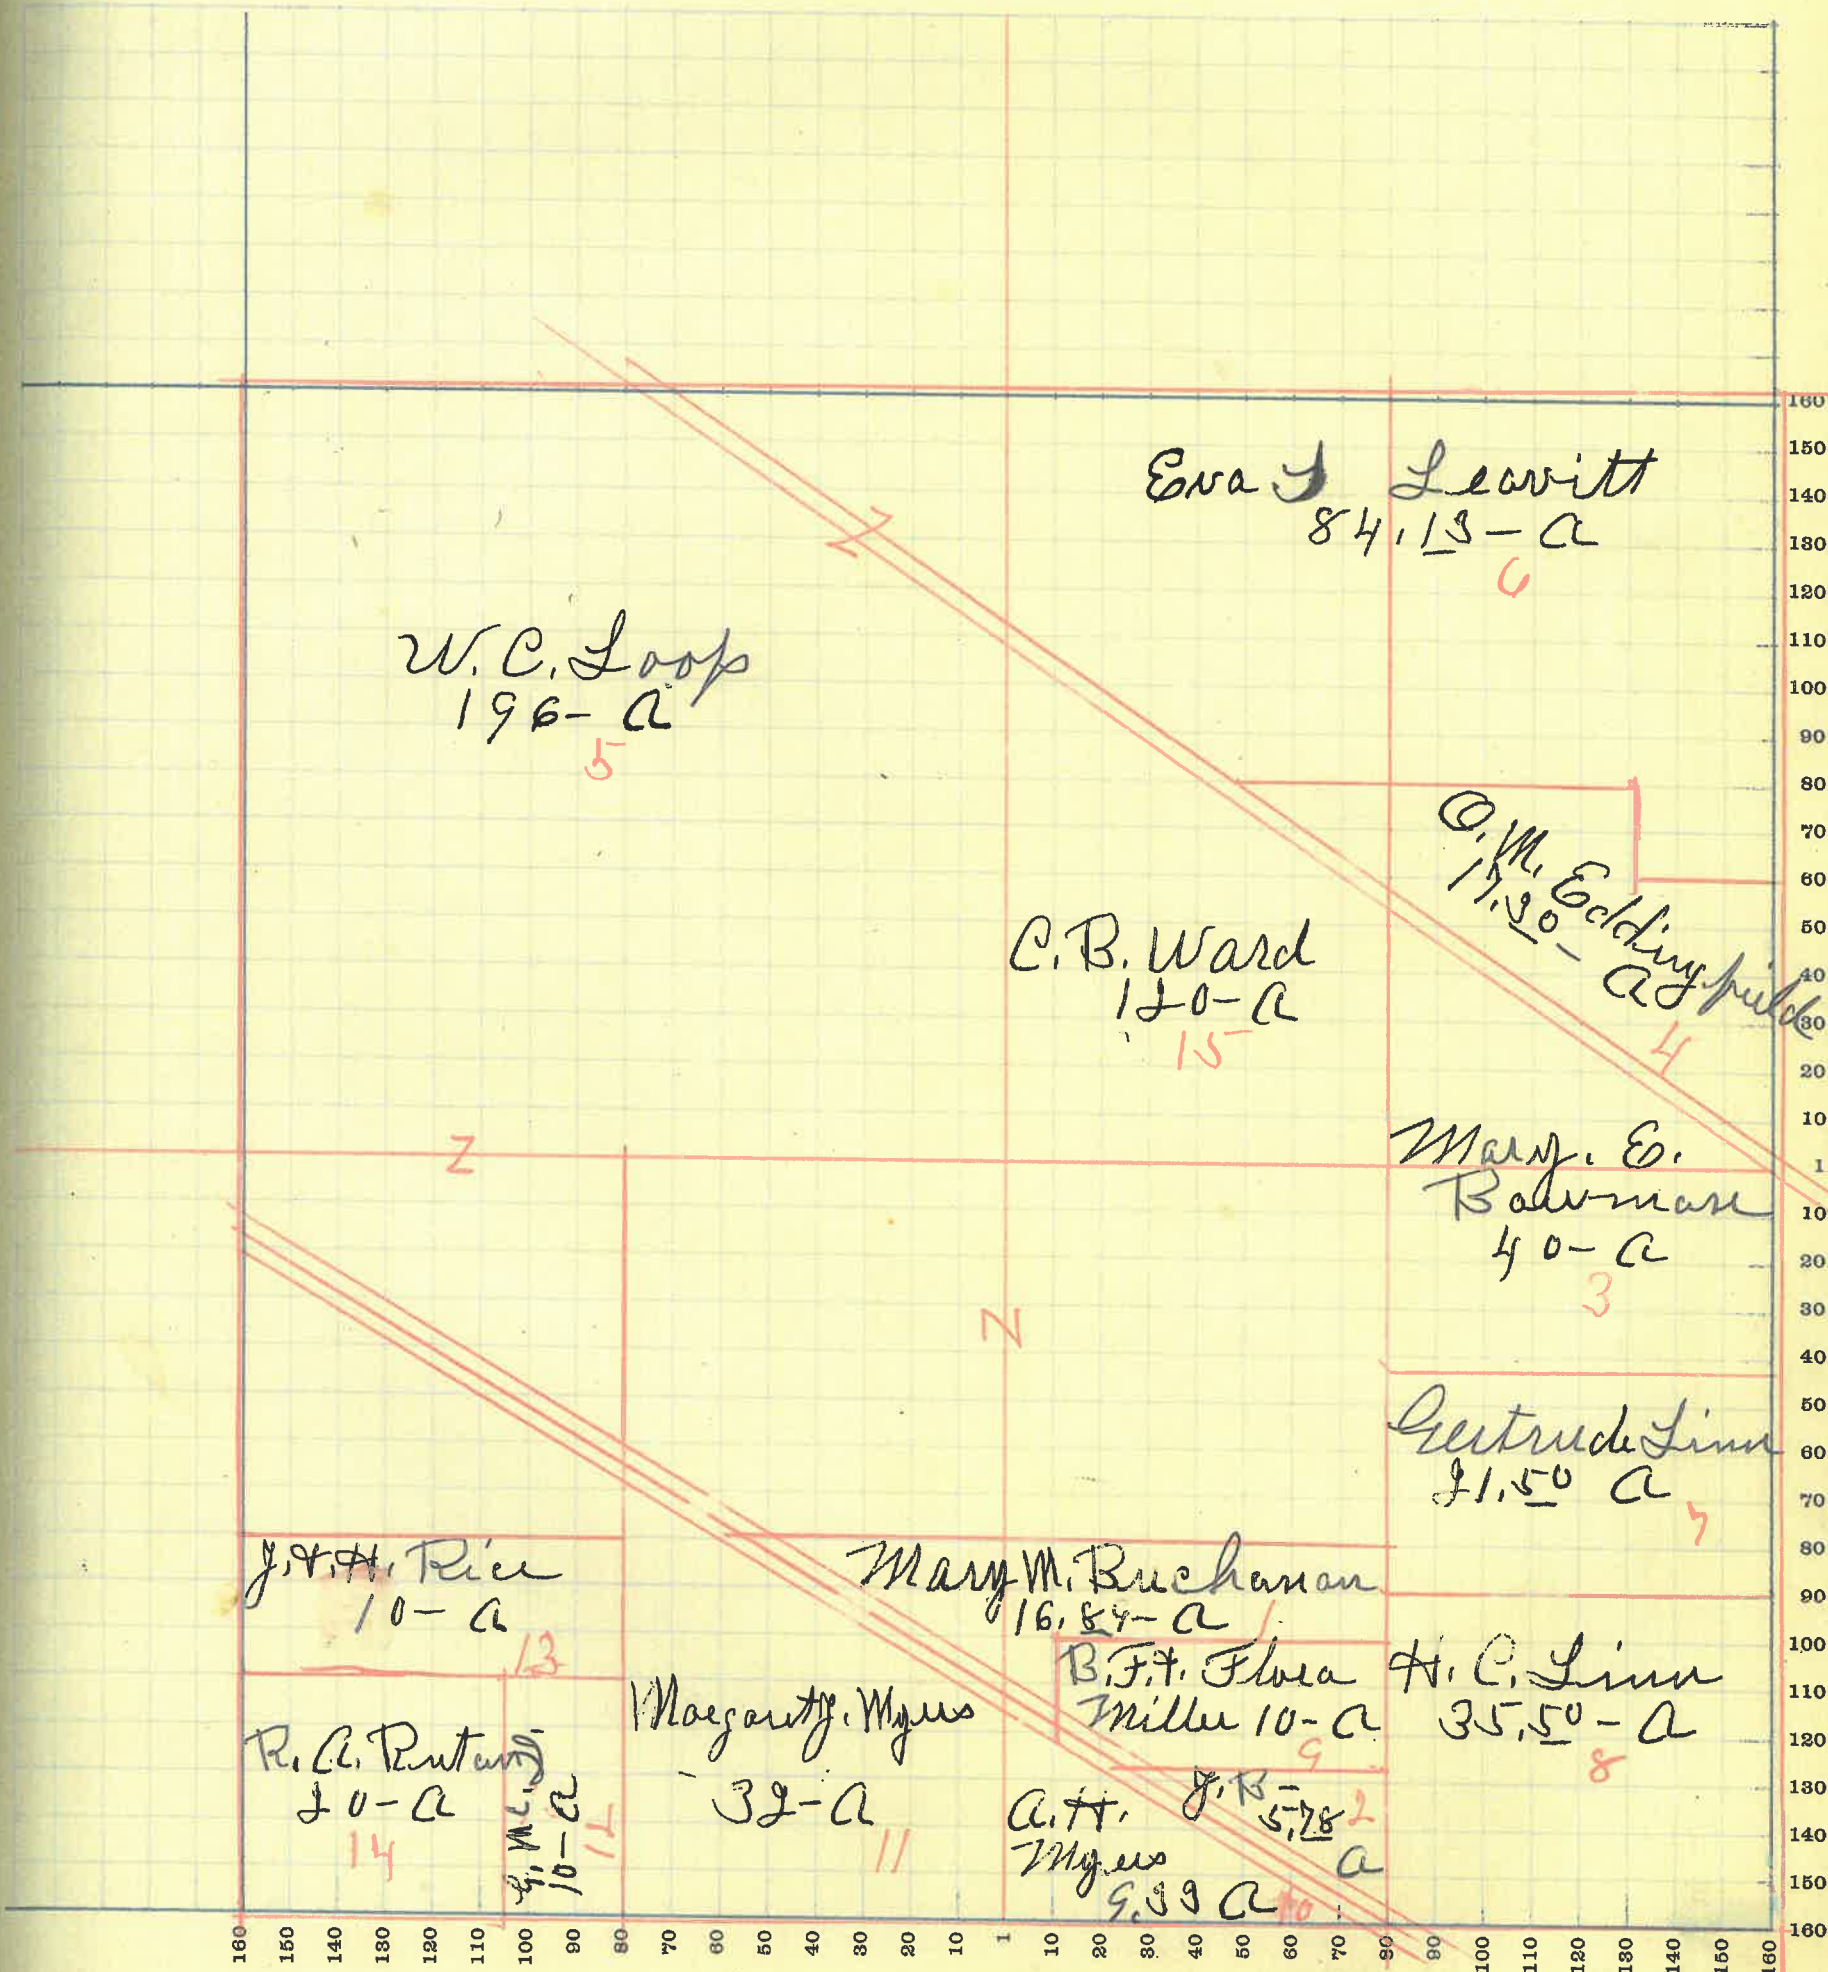 Eva L Leavitt
84.13-A
6
W.C. Loop
196-A
5
O.M. Eddingfield
17.30-
A
4
C.B. Ward
120-A
15
Mary. E.
Bowman
40-A
3
Z
N
Gertrude Linn
21.50 A
7
J.&H. Rice
10-A
13
Mary M. Buchanan
16.84-A
1
B.F.&. Flora
Miller 10-A
9
H.C. Linn
35.50-A
8
Margaret J. Myers
32-A
11
R.A. Rutan
20-A
14
10-A
12
J.B-
5.78
A
2
A.H.
Myers
9.39 A
10
160
150
140
130
120
110
100
90
80
70
60
50
40
30
20
10
1
10
20
30
40
50
60
70
80
90
100
110
120
130
140
150
160
160 150 140 130 120 110 100 90 80 70 60 50 40 30 20 10 1 10 20 30 40 50 60 70 80 90 100 110 120 130 140 150 160